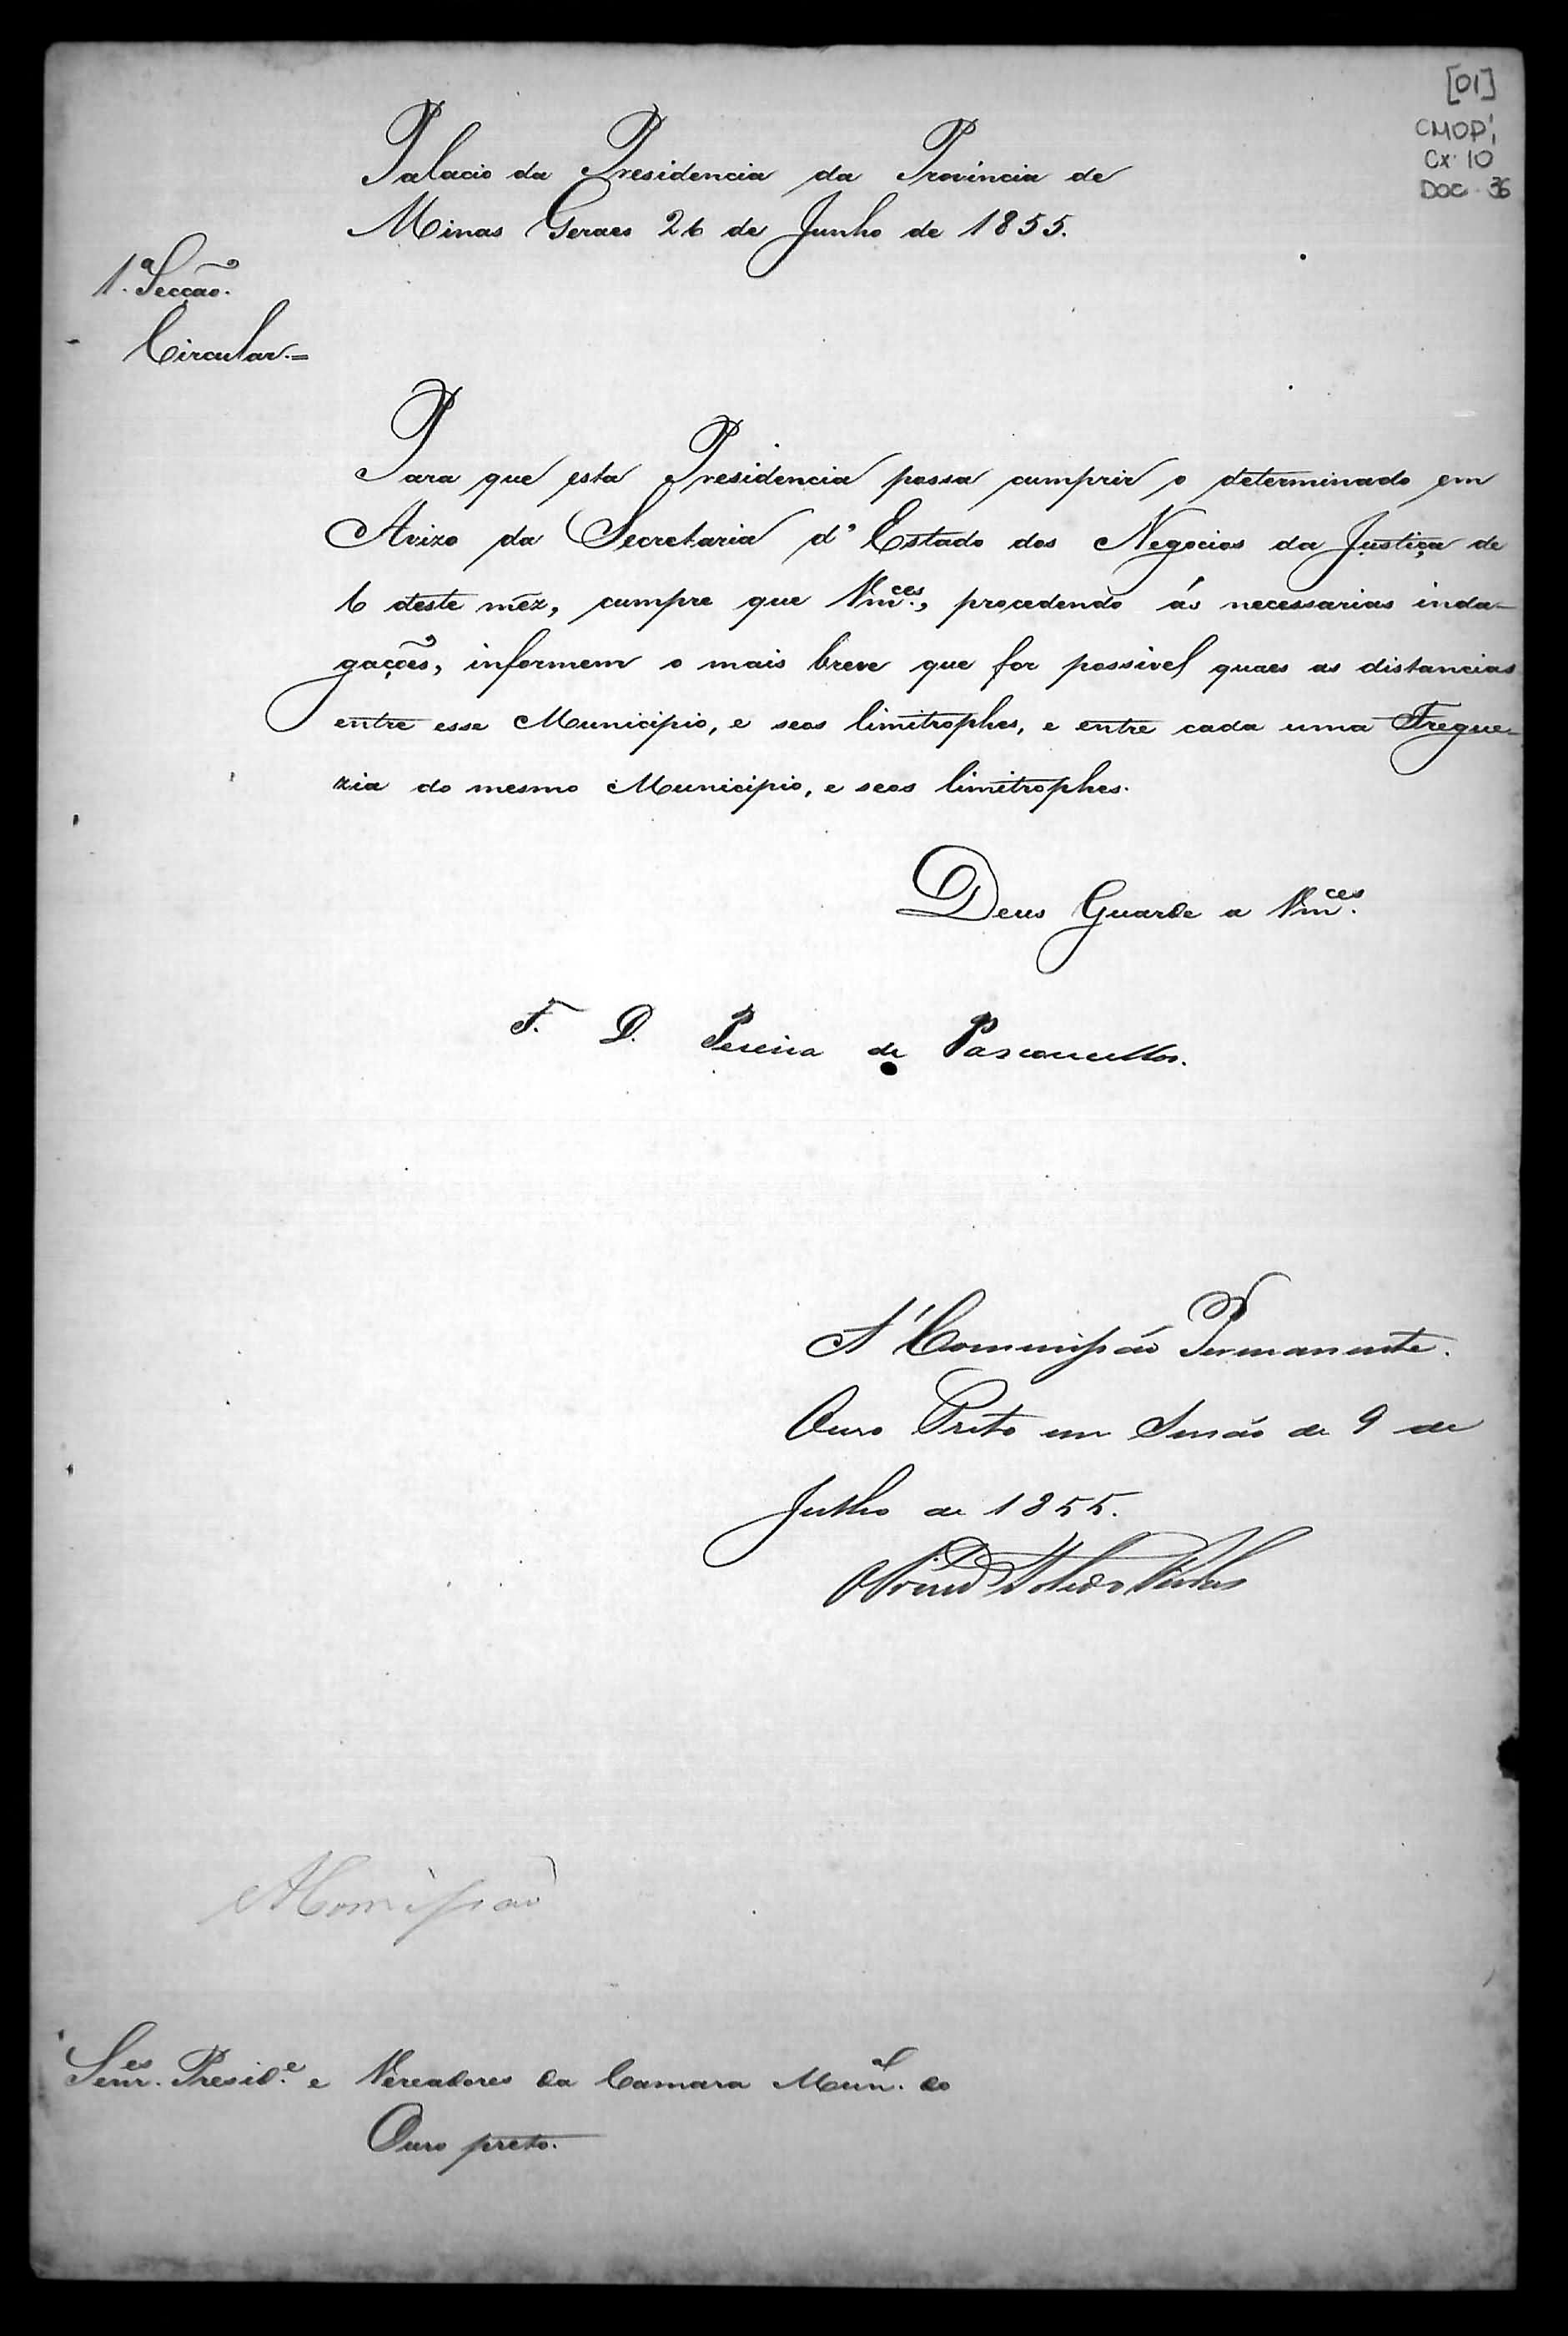 [01]
CMOP,
CX. 10
DOC. 36
Palacio da Presidencia da Provincia de
Minas Geraes 26 de Junho de 1855.
1.ª Secção.
Circular.=
Para que esta Presidencia possa cumprir o determinado em
Avizo da Secretaria d'Estado dos Negocios da Justiça de
6 deste mez, cumpre que Vm.ces, procedendo ás necessarias inda-
gações, informem o mais breve que for possivel quaes as distancias
entre esse Municipio, e seos limitrophes, e entre cada uma Fregue-
zia do mesmo Municipio, e seos limitrophes.
Deus Guarde a Vm.ces
F. D. Pereira de Vasconcellos.
A' Commissão Permanente.
Ouro Preto em Sessão de 9 de
Julho de 1855.
Toledo
A Comissão
Senr.es Presid.e e Vereadores da Camara Mun.al do
Ouro preto.